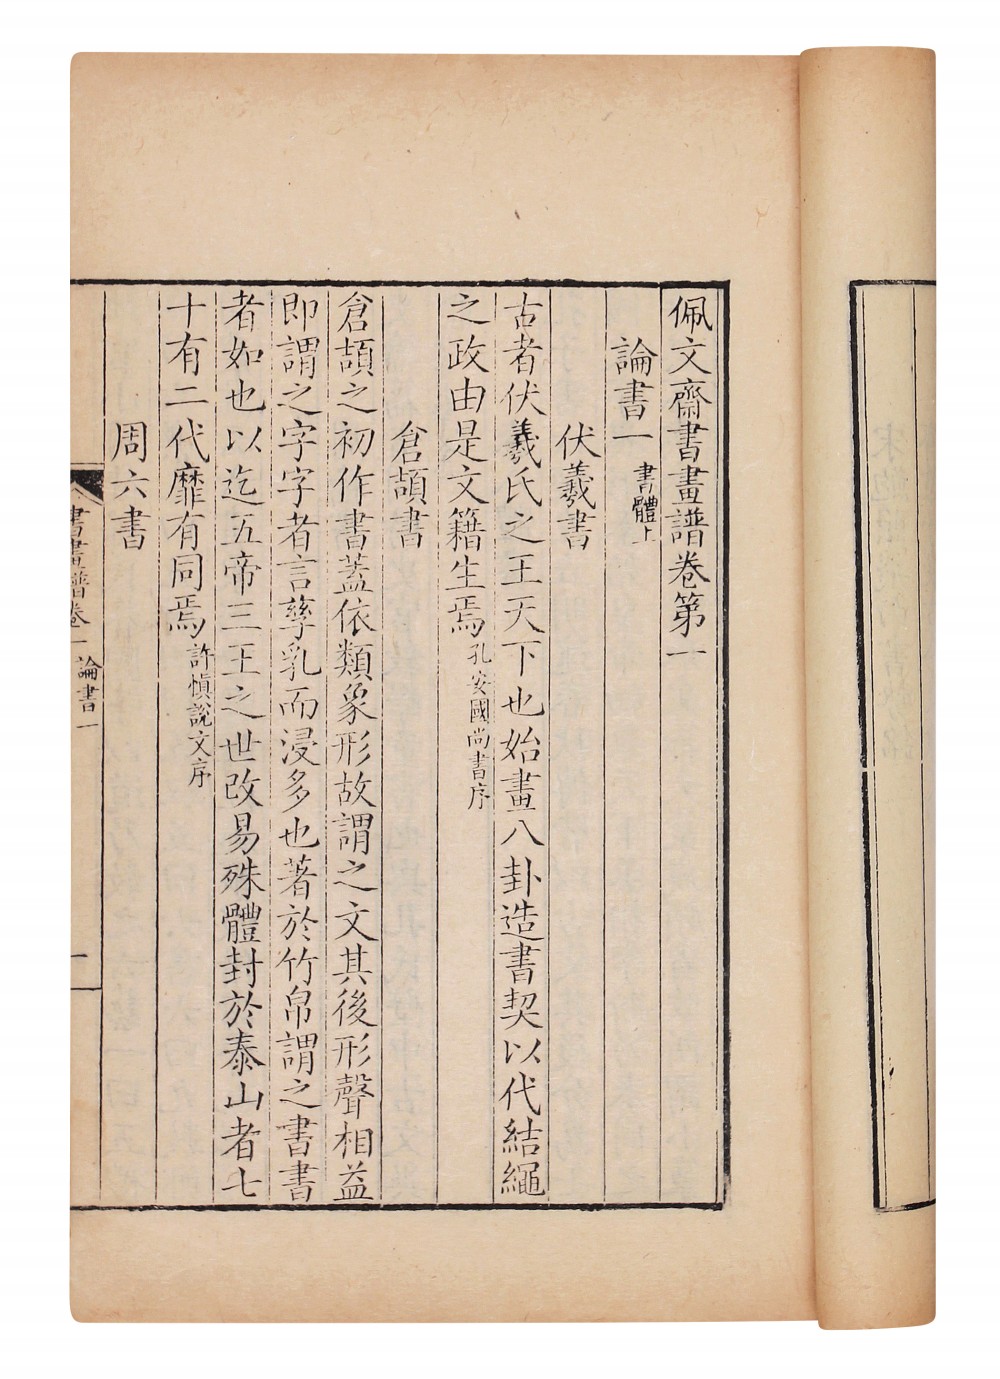 佩文齋書畫譜卷第一
論書一 書體上
伏羲書
古者伏羲氏之王天下也始畫八卦造書契以代結繩
之政由是文籍生焉 孔安國尚書序
倉頡書
倉頡之初作書蓋依類象形故謂之文其後形聲相益
即謂之字字者言孳乳而浸多也著於竹帛謂之書書
者如也以迄五帝三王之世改易殊體封於泰山者七
十有二代靡有同焉 許慎說文序
周六書
書畫譜卷一 論書一 一